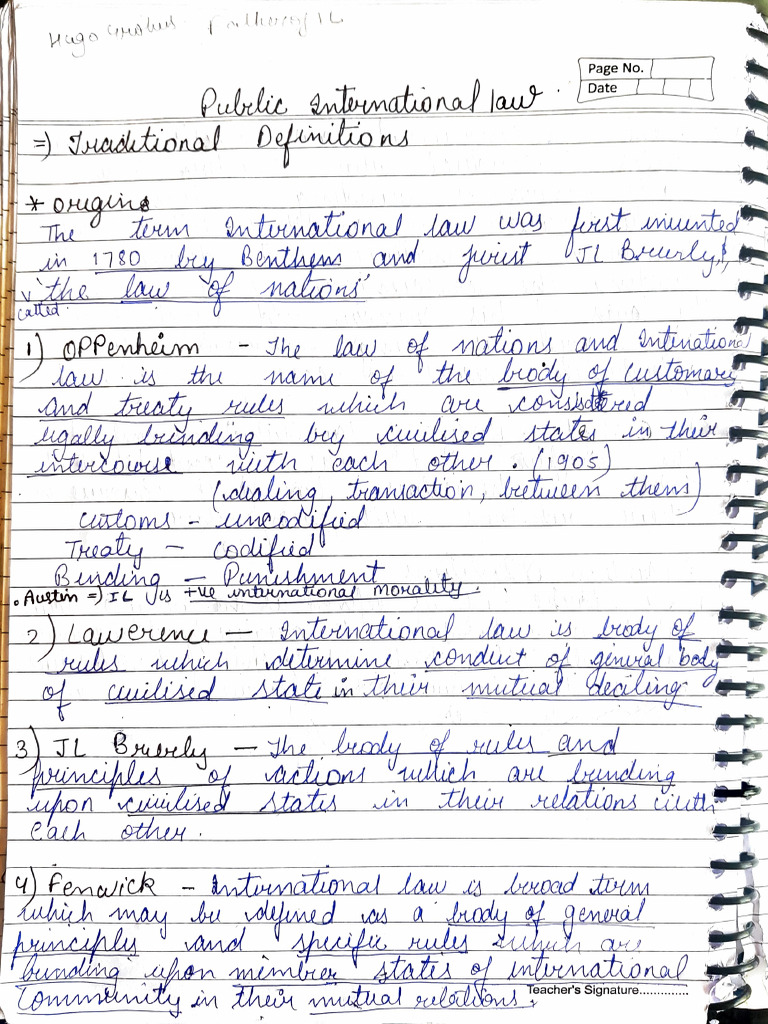 Hugo Grotius Father of IL
Page No.
Date
Public International law.
=) Traditional Definitions
* Origin
The term International law was first invented
in 1780 by Benthem and jurist JL Brierly,
called 'the law of nations'
1) Oppenheim - The law of nations and International
law is the name of the body of customary
and treaty rules which are considered
legally binding by civilised states in their
intercourse with each other. (1905)
(dealing, transaction, between them)
Customs - uncodified
Treaty - codified
Binding - Punishment
. Austin =) IL is +ve international morality.
2) Lawerence - International law is body of
rules which determine conduct of general body
of civilised state in their mutual deciling
3) JL Brierly - The body of rules and
principles of actions which are binding
upon civilised states in their relations with
each other.
4) Fenwick - International law is broad term
which may be defined as a body of general
principles and specific rules which are
binding upon member states of international
Community in their mutual relations.
Teacher's Signature..............